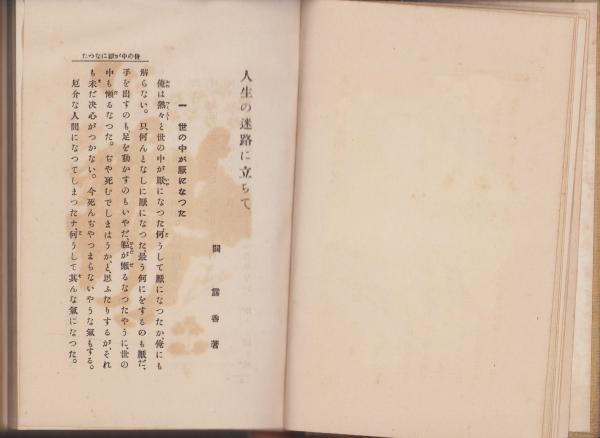 人生の迷路に立ちて
關 露香 著
一 世の中が厭になつた
俺は熟々と世の中が厭になつた何うして厭になつたか、俺にも
解らない。只何んとなしに厭になつた、最う何にをするのも厭だ、
手を出すのも、足を動かすのもいやだ、軀が懶るなつたやうに、世の
中も懶るなつた。ぢや死むでしまはうか、と思ふたりするが、それ
も未だ決心がつかない。今死んぢやつまらないやうな氣もする。
厄介な人間になつてしまつたナ何うして其んな氣になつた。
たつなに厭が中の世